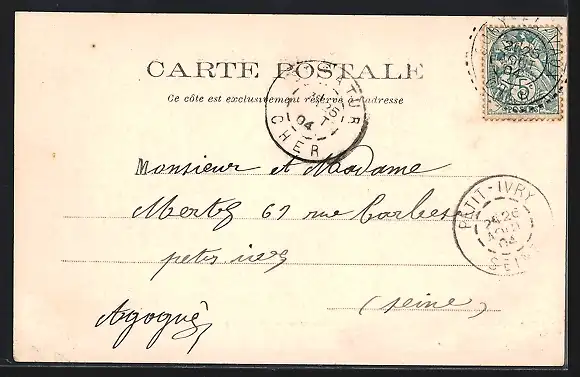 CARTE POSTALE
Ce côte est exclusivement réservé à l'adresse
CHER
04
Monsieur et Madame
Mertz 61 rue Barbes
petit ivry
PETIT-IVRY
26
AOUT
04
SEINE
(seine)
Agogué
5